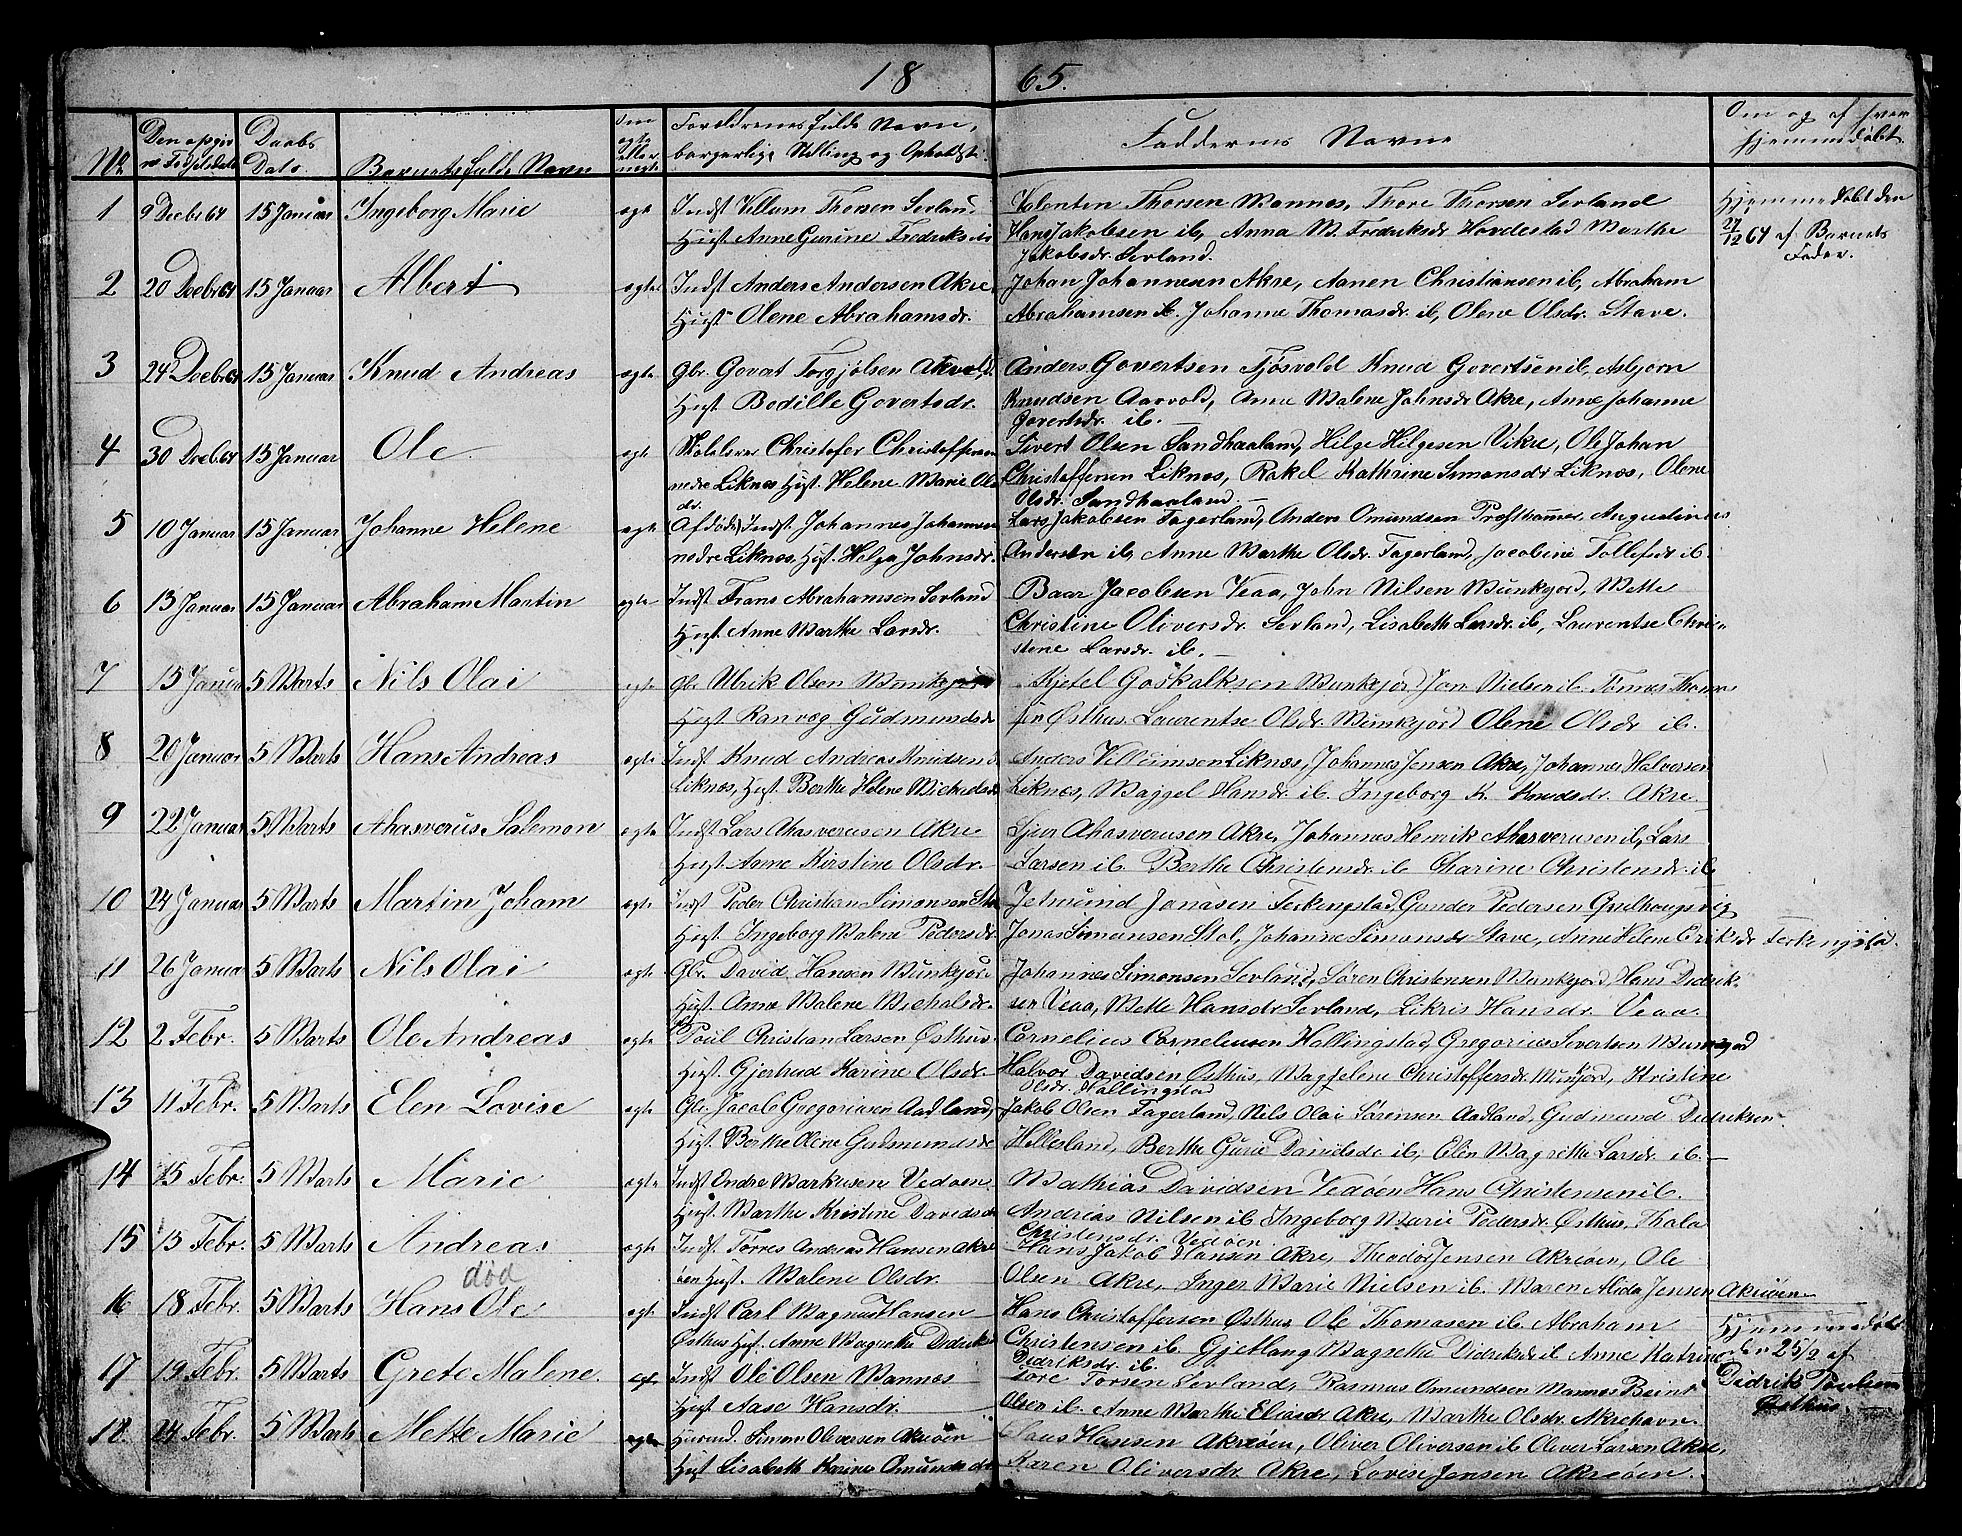 1865.
No
Den opgiv
ne Fødselsdato
Daabs
Dato
Barnets fulde Navn
Om
ægte
eller
uægte
Forældrenes fulde Navn,
borgerlige Stilling og Opholdst.
Faddernes Navne
Om og af hvem
hjemmedøbt.
1 9 Decbr 64 15 Januar Ingeborg Marie ægte Indst Villum Thorsen Sevland Valenten Thorsen Mannes, Thore Thorsen Sevland Hjemmedøbt den
Hust Anne Gurine Fredriksdr Hans Jakobsen ib, Anna M. Fredriksdr Hovdestad Marthe 27/12 64 af Barnets
Jakobsdr. Sevland. Fader.
2 20 Decbr 64 15 Januar Albert ægte Indst Anders Andersen Akre, Johan Johannesen Akre, Aanen Christiansen ib, Abraham
Hust Olene Abrahamsdr. Abrahamsen ib. Johanne Thomasdr. ib, Olene Olsdr. Stave.
3 24 Decbr 64 15 Januar Knud Andreas ægte Gbr. Govert Torgjølsen Anders Govertsen Tjøsvold Knud Govertsen ib, Asbjørn
Hust. Bodille Govertsdr. Knudsen Aarvold, Anne Malene Johnsdr Akre, Anne Johanne
Govertsdr. ib.
4 30 Decbr 64 15 Januar Ole ægte Skolelærer Christofer Christoffersen Sivert Olsen Sandhaaland, Helge Helgesen Vikre, Ole Johan
nedre Liknes Hust. Helene Marie Ols Christoffersen Liknes, Rakel Kathrine Simonsdr Liknes, Olene
dr. Olsdr. Sandhaaland.
5 10 Januar 15 Januar Johanne Helene ægte (Afdøde) Indst. Johannes Johannesen Lars Jakobsen Fagerland, Anders Omundsen Augustinus
nedre Liknes, Hust. Helga Johnsdr. Andersen ib, Anne Marthe Olsdr. Fagerland, Jacobine Tollefsdr ib.
6 13 Januar 15 Januar Abraham Martin ægte Indst Frans Abrahamsen Sevland Baar Jacobsen Veaa, John Nilsen Munkejord, Mette
Hust. Anne Marthe Larsdr. Christine Oliversdr. Sevland, Lisabeth Larsdr. ib, Laurentse Chri-
stene Larsdr. ib.
7 15 Januar 5 Marts Nils Olai ægte Gbr Ulrik Olsen Munkejord Kjetel Goskalksen Munkejord, Jon Nielsen ib. Tønnes Thomas
Hust Ranvæg Gudmundsdr sen Østhus. Laurentse Olsdr. Munkejord Olene Olsdr ib.
8 20 Januar 5 Marts Hans Andreas ægte Indst Knud Andreas Knudsen Anders Villumsen Liknes, Johannes Jensen Akre, Johannes Halversen
Liknes, Hust. Berthe Helene Mickelsdr Liknes, Maggel Hansdr. ib. Ingeborg K. Knudsdr. Akre
9 22 Januar 5 Marts Ahasverus Salemon ægte Indst Lars Ahasverusen Akre Sjur Ahasverusen Akre, Johannes Henrik Ahasverusen ib, Lars
Hust Anne Kirstine Olsdr. Larsen ib. Berthe Christensdr. ib Charine Christensdr. ib
10 24 Januar 5 Marts Martin Joham ægte Indst Peder Christian Simonsen Jetmund Jonasen Ferkingstad, Gunder Pedersen
Hust. Ingeborg Malene Pedersdr. Jonas Simonsen Stol, Johanne Simonsdr Stave, Anne Helene Eriksdr Ferkingstad.
11 26 Januar 5 Marts Nils Olai ægte Gbr. David Hansen Munkejor- Johannes Simonsen Sevland, Søren Christensen Munkejord, Hans Didrik-
Hust. Anne Malene Michelsdr. sen Veaa, Mette Hansdr Sevland, Likris Hansdr. Veaa.
12 2 Febr. 5 Marts Ole Andreas ægte Poul Christian Larsen Østhus. Cornelius Corneliussen Hellingstad, Gregorius Sivertsen Munkejord
Hust. Gjertrud Karine Olsdr. Halvor Davidsen Østhus, Magdelene Christoffersdr. Munkjord, Kristine
Olsdr. Hallingstad
13 11 Febr. 5 Marts Elen Lovise ægte Gbr. Jacob Gregoriusen Aadland, Jakob Olsen Fagerland, Nils Olai Sørensen Aadland, Gudmund Didriksen
Hust. Berthe Olene Gudmundsdr Hellesland, Berthe Gurie Davidsdr ib, Elen Magrethe Larsdr. ib.
14 15 Febr. 5 Marts Marie ægte Indst Endre Markusen Vedøen Mathias Davidsen Vedøen Hans Christensen ib.
Hust. Marthe Kristine Davidsdr Andreas Nilsen ib Ingeborg Marie Pedersdr. Østhus, Thala
Christensdr. Vedøen
15 15 Febr. 5 Marts Andreas ægte Indst. Torres Andreas Hansen Akre Hans Jakob Hansen Akre, Theodor Jensen Akreøen, Ole
øen Hust. Malene Olsdr. Olsen Akre, Inger Marie Nielsen ib. Maren Alida Jensen Akreøen
død
16 18 Febr. 5 Marts Hans Ole ægte Indst Carl Magnus Hansen Hans Christoffersen Østhus Ole Thomasen ib. Abraham Hjemmedøbt
Østhus Hust. Anne Magrethe Didriksdr Christensen ib. Magrethe Didriksdr ib Anne Katrine den 25/2 af
Didriksdr. ib. Didrik Poulsen
Østhus.
17 19 Febr. 5 Marts Grete Malene ægt Indst Ole Olsen Mannes Tore Torsen Sevland, Rasmus Omundsen Mannes Beint
Hust Aase Hansdr. Olsen ib. Anne Marthe Eliasdr Akre, Marthe Olsdr. Akrehavn
18 24 Febr. 5 Marts Mette Marie ægte Simon Oliversen Akreøen Claus Hansen Akreøen, Oliver Oliversen ib Oliver Larsen Akre,
Hust Lisabeth Karine Omundsdr Karen Oliversdr Akre, Lovise Jensen Akreøen.